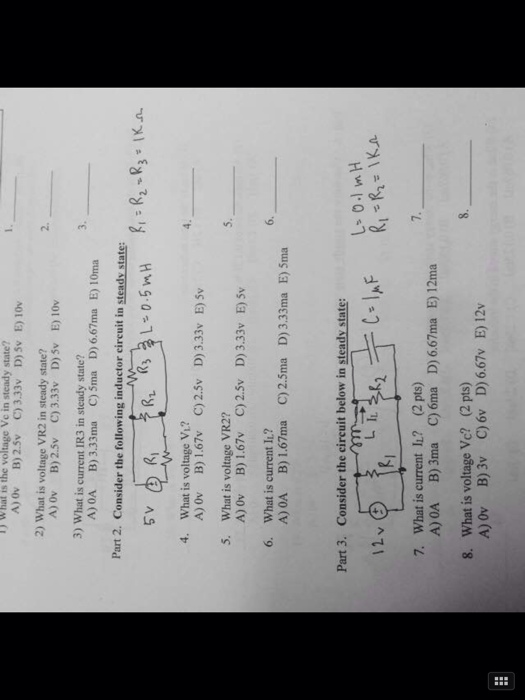 1) What is the voltage Vc in steady state? 1.
A) 0v B) 2.5v C) 3.33v D) 5v E) 10v
2) What is voltage VR2 in steady state? 2.
A) 0v B) 2.5v C) 3.33v D) 5v E) 10v
3) What is current IR3 in steady state? 3.
A) 0A B) 3.33ma C) 5ma D) 6.67ma E) 10ma
Part 2. Consider the following inductor circuit in steady state:
5v ± R1 R2 R3 L=0.5mH R1=R2=R3=1KΩ
4. What is voltage VL? 4.
A) 0v B) 1.67v C) 2.5v D) 3.33v E) 5v
5. What is voltage VR2? 5.
A) 0v B) 1.67v C) 2.5v D) 3.33v E) 5v
6. What is current IL? 6.
A) 0A B) 1.67ma C) 2.5ma D) 3.33ma E) 5ma
Part 3. Consider the circuit below in steady state:
12v ± R1 L IL R2 C=1μF L=0.1mH
R1=R2=1KΩ
7. What is current IL? (2 pts) 7.
A) 0A B) 3ma C) 6ma D) 6.67ma E) 12ma
8. What is voltage Vc? (2 pts) 8.
A) 0v B) 3v C) 6v D) 6.67v E) 12v